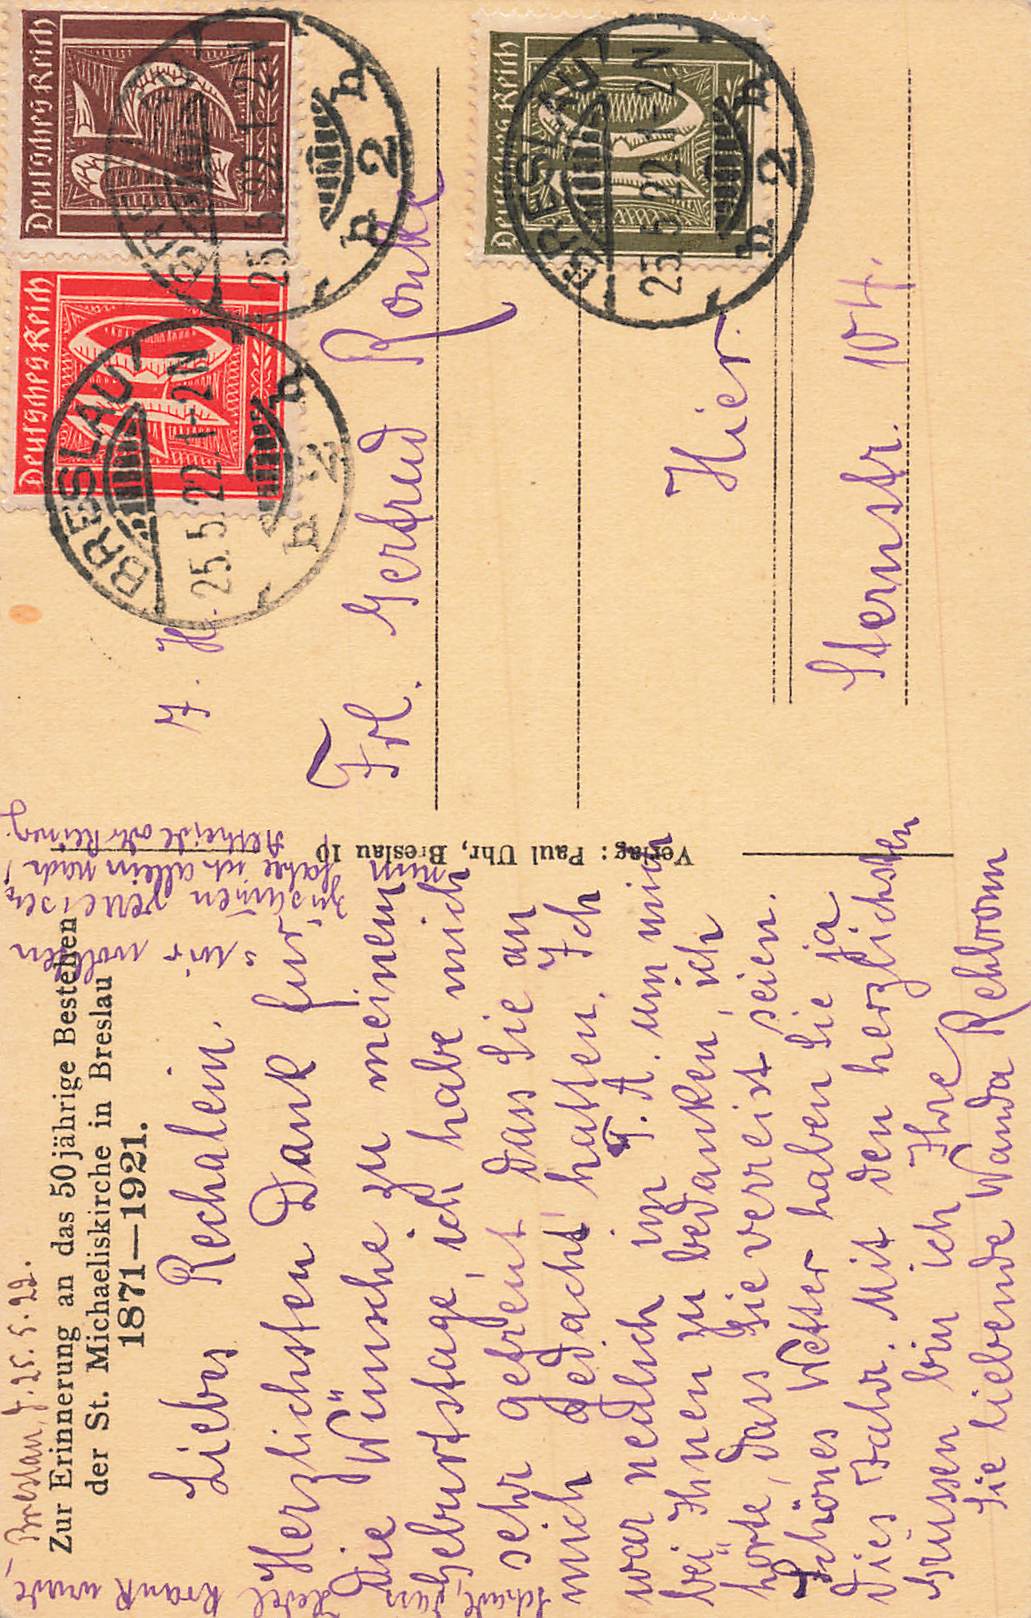 Breslau, d. 25.5.22.
Zur Erinnerung an das 50jährige Bestehen
der St. Michaeliskirche in Breslau
1871—1921.
Liebes Rechalein.
Herzlichsten Dank für
die Wünsche zu meinem
Geburtstage, ich habe mich
sehr gefreut dass Sie an
mich gedacht hatten. Ich
war nedlich im T. A. um mich
bei Ihnen zu bedanken, ich
hörte, dass Sie verreist seien.
Schönes Wetter haben Sie ja
dies Jahr. Mit den herzlichsten
Grüssen bin ich Ihre
Sie liebende Wanda Rehbronn
Schade, dass
Hedel krank wurde,
wir wollten
zusammen verreisen,
nun fahre ich allein nach
Altheide oder Reinerz.
Verlag: Paul Uhr, Breslau 10
Deutsches Reich
10
Deutsches Reich
25
Deutsches Reich
10
BRESLAU
25.5.22.1-2N
h 2 h
BRESLAU
25.5.22.1-2N
h 2 h
BRESLAU
25.5.22.1-2N
h 2 h
J. H.
Frl. Gertrud
Hier.
Sternstr. 104.